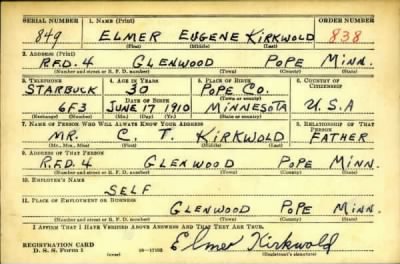 SERIAL NUMBER 1. NAME (Print) ORDER NUMBER
849 ELMER EUGENE KIRKWOLD 838
(First) (Middle) (Last)
2. ADDRESS (Print)
R.F.D. 4 GLENWOOD POPE MINN.
(Number and street or R. F. D. number) (Town) (County) (State)
3. TELEPHONE 4. AGE IN YEARS 5. PLACE OF BIRTH 6. COUNTRY OF CITIZENSHIP
STARBUCK 30 POPE CO.
DATE OF BIRTH (Town or county)
6F3 JUNE 17 1910 MINNESOTA U.S.A
(Exchange) (Number) (Mo.) (Day) (Yr.) (State or country)
7. NAME OF PERSON WHO WILL ALWAYS KNOW YOUR ADDRESS 8. RELATIONSHIP OF THAT PERSON
MR. C. T. KIRKWOLD FATHER
(Mr., Mrs., Miss) (First) (Middle) (Last)
9. ADDRESS OF THAT PERSON
R.F.D. 4 GLENWOOD POPE MINN.
(Number and street or R. F. D. number) (Town) (County) (State)
10. EMPLOYER'S NAME
SELF
11. PLACE OF EMPLOYMENT OR BUSINESS
GLENWOOD POPE MINN.
(Number and street or R. F. D. number) (Town) (County) (State)
I AFFIRM THAT I HAVE VERIFIED ABOVE ANSWERS AND THAT THEY ARE TRUE.
REGISTRATION CARD
D. S. S. Form 1 Elmer Kirkwold
(over) (Registrant's signature)